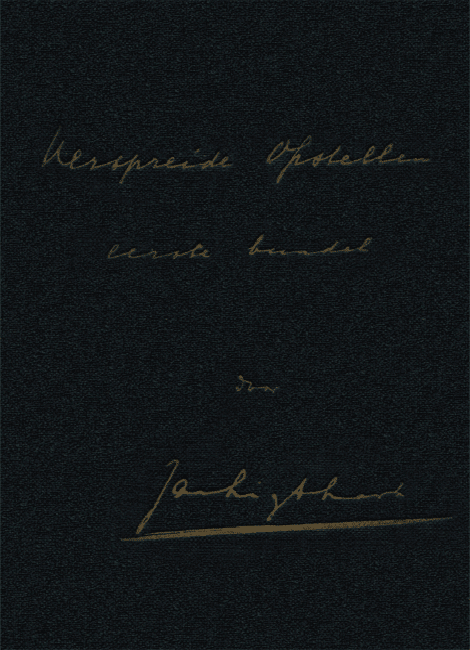 Verspreide Opstellen
eerste bundel
door
Jan Ligthart